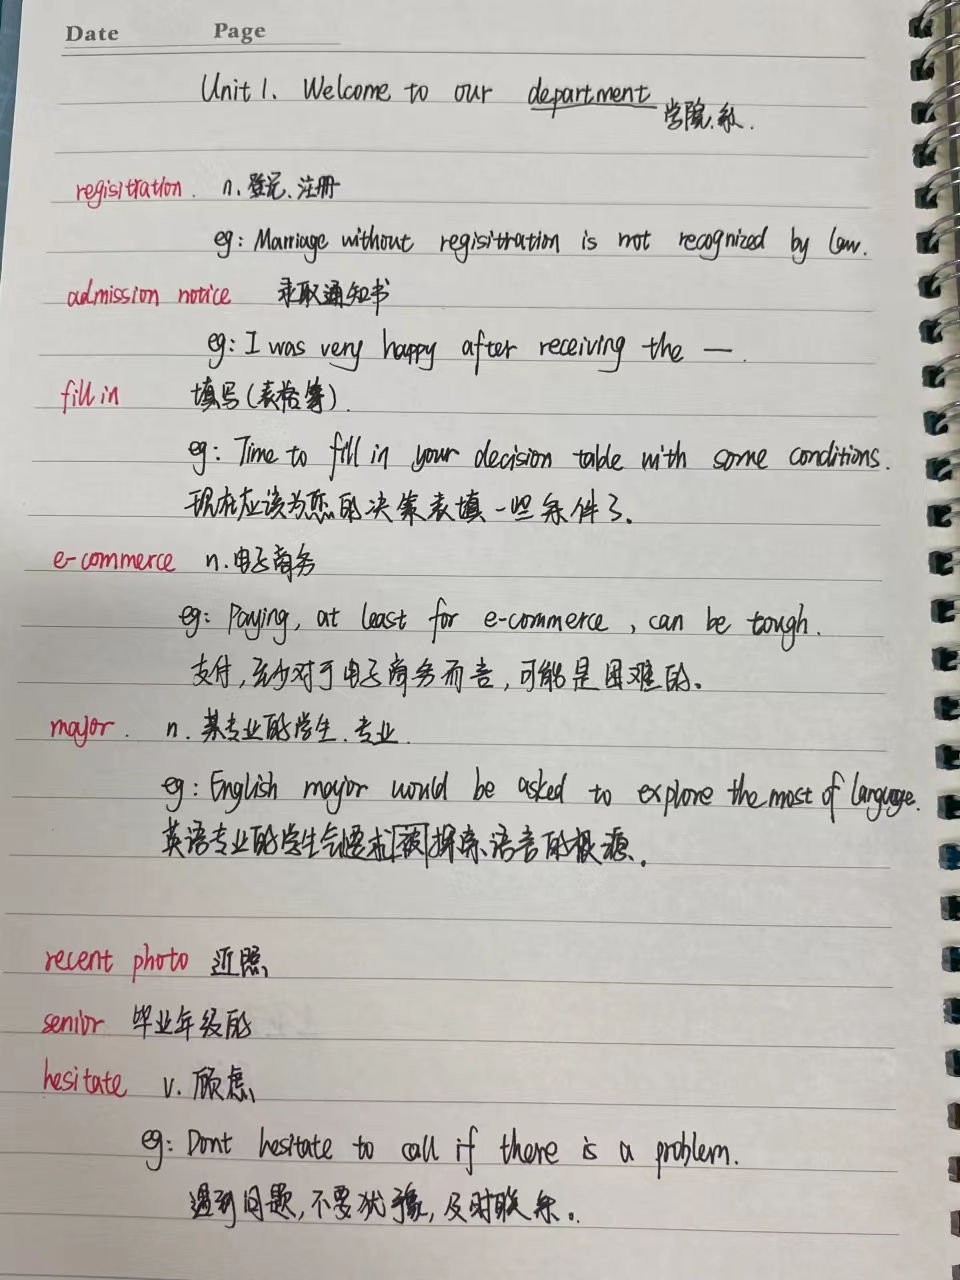 Date Page
Unit 1. Welcome to our department 学院.系.
regisitration. n. 登记、注册
eg: Marriage without regisitration is not recognized by law.
admission notice 录取通知书
eg: I was very happy after receiving the —.
fill in 填写(表格等).
eg: Time to fill in your decision table with some conditions.
现在应该为您的决策表填一些条件了.
e-commerce n. 电子商务
eg: Paying, at least for e-commerce, can be tough.
支付,至少对于电子商务而言,可能是困难的.
major. n. 某专业的学生.专业.
eg: English major would be asked to explore the most of language.
英语专业的学生会要求被探索语言的根源.
recent photo 近照
senior 毕业年级的
hesitate v. 顾虑
eg: Dont hesitate to call if there is a problem.
遇到问题,不要犹豫,及时联系.